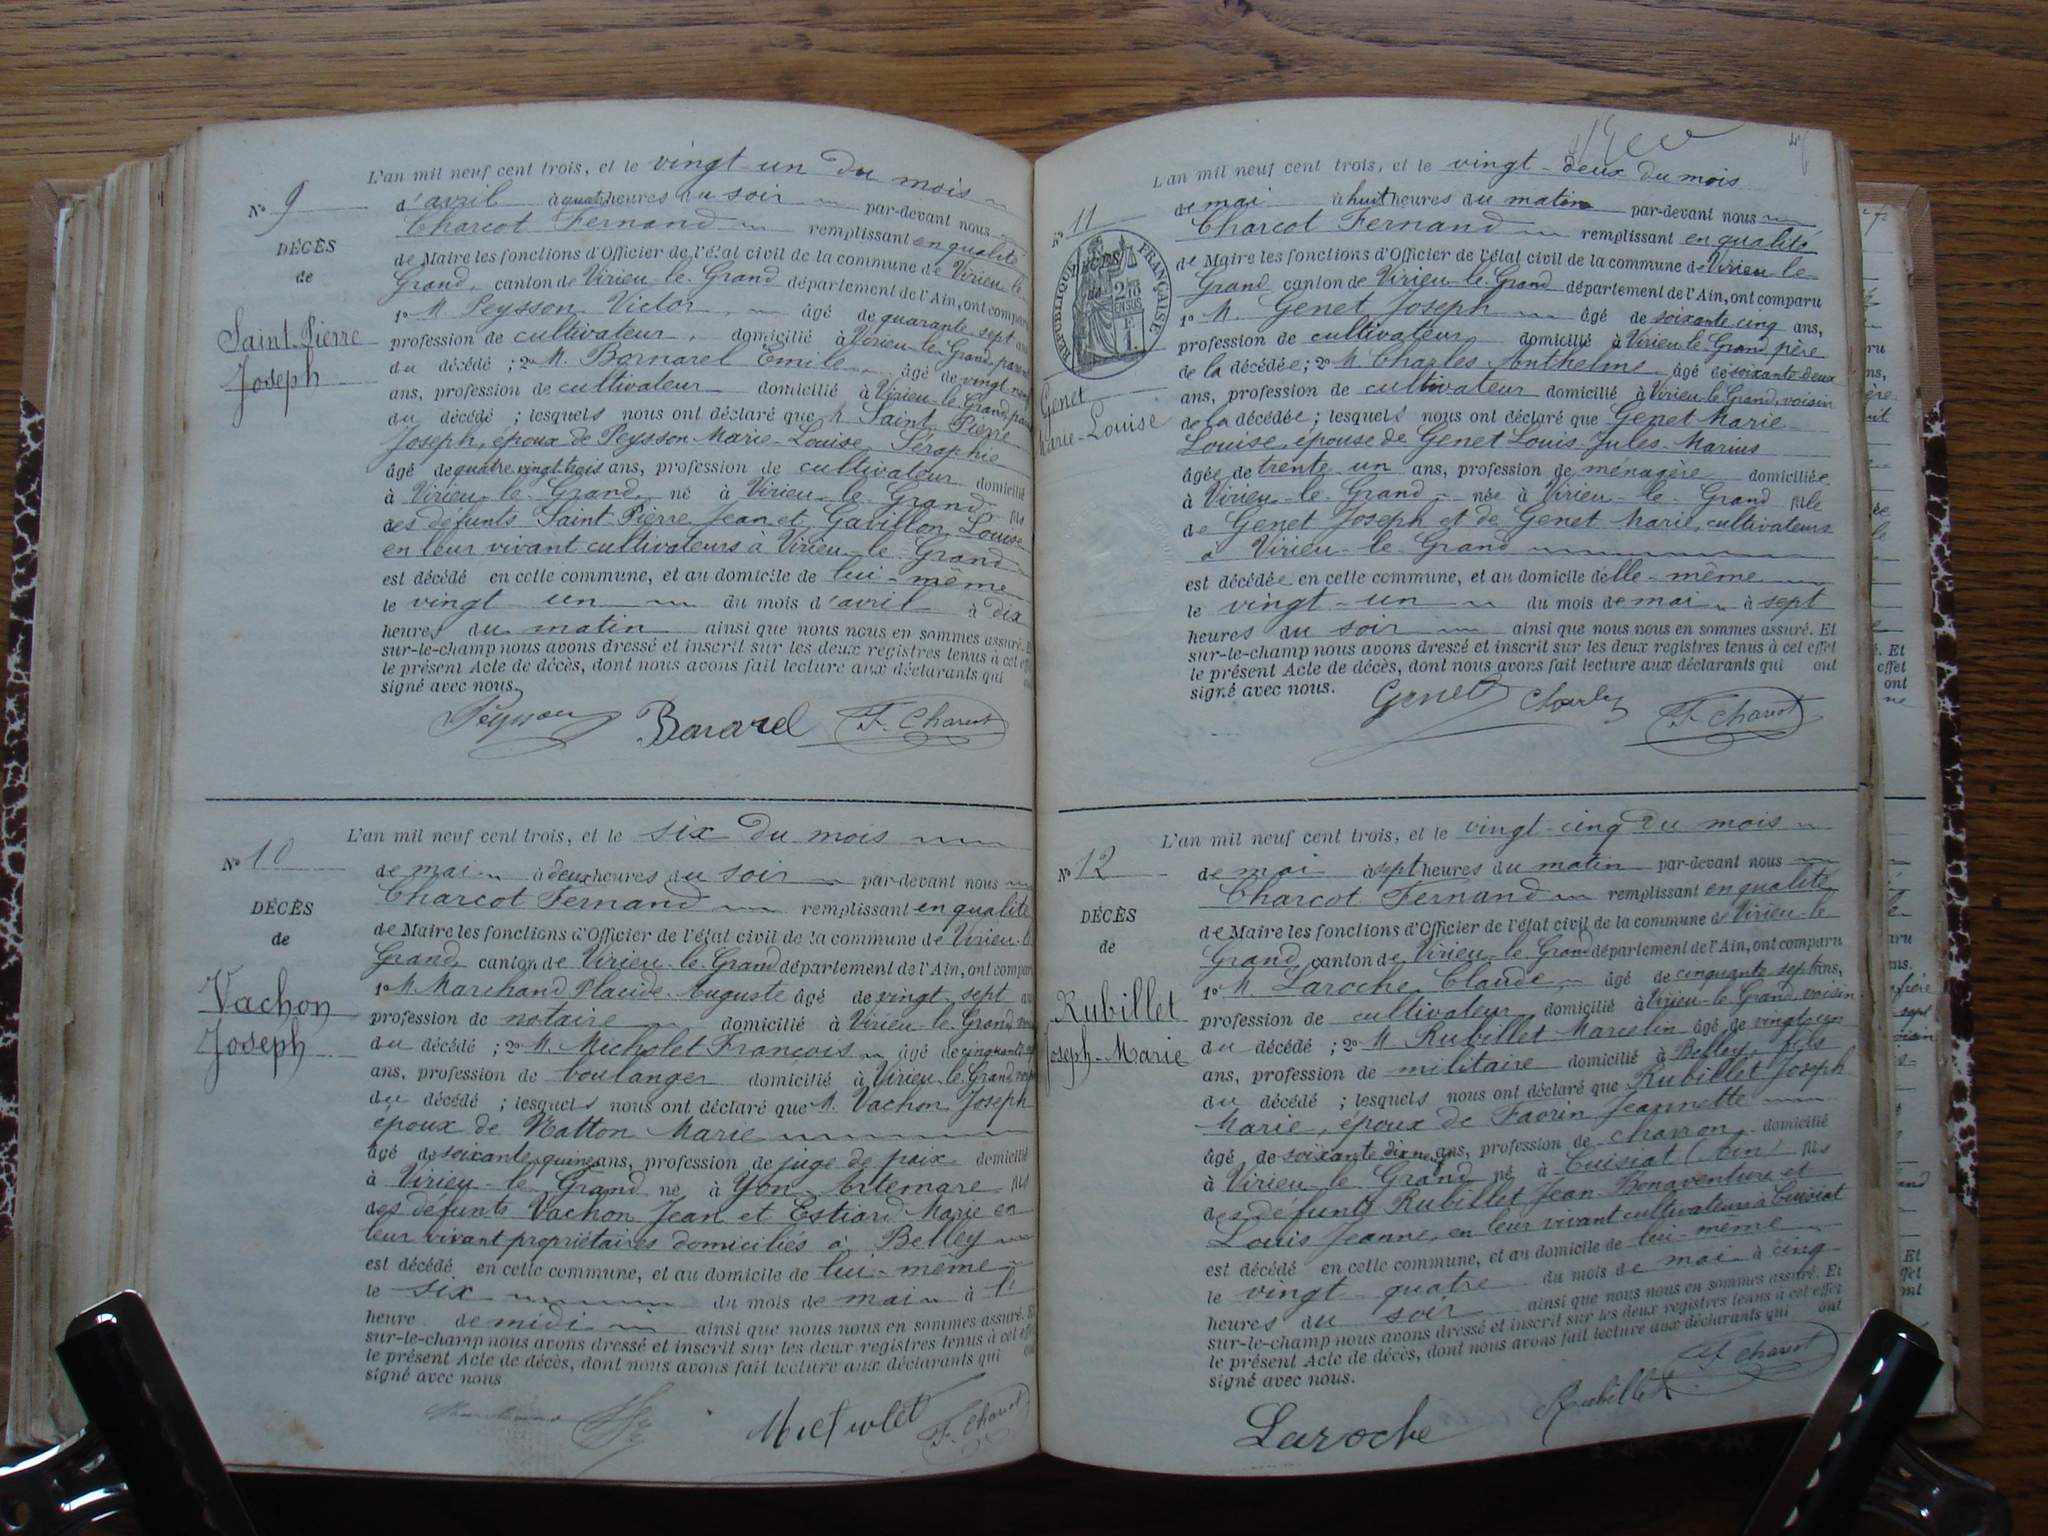 L'an mil neuf cent trois, et le vingt-un du mois
N° 9
d'avril à quatre heures du soir par-devant nous
Charcot Fernand remplissant en qualité
DÉCÈS
de Maire les fonctions d'Officier de l'état civil de la commune de Virieu-le
de
Grand, canton de Virieu-le-Grand département de l'Ain, ont comparu
1° M. Peysson Victor, âgé de quarante sept ans
Saint-Pierre
profession de cultivateur, domicilié à Virieu-le-Grand,
Joseph
du décédé ; 2° M. Bornarel Emile, âgé de vingt neuf
ans, profession de cultivateur domicilié à Virieu-le-Grand,
du décédé ; lesquels nous ont déclaré que M. Saint-Pierre
Joseph, époux de Peysson Marie-Louise Séraphie
âgé de quatre vingt trois ans, profession de cultivateur domicilié
à Virieu-le-Grand, né à Virieu-le-Grand fils
des défunts Saint-Pierre Jean et Gavillon Louise
en leur vivant cultivateurs à Virieu-le-Grand
est décédé en cette commune, et au domicile de lui-même
le vingt-un du mois d'avril à dix
heures du matin ainsi que nous nous en sommes assuré. Et
sur-le-champ nous avons dressé et inscrit sur les deux registres tenus à cet effet
le présent Acte de décès, dont nous avons fait lecture aux déclarants qui
signé avec nous.
Peysson Bornarel F. Charcot
L'an mil neuf cent trois, et le six du mois
N° 10
de mai à deux heures du soir par-devant nous
Charcot Fernand remplissant en qualité
DÉCÈS
de Maire les fonctions d'Officier de l'état civil de la commune de Virieu-le
de
Grand, canton de Virieu-le-Grand département de l'Ain, ont comparu
Vachon
1° M. Marchand Placide-Auguste âgé de vingt-sept ans
profession de notaire domicilié à Virieu-le-Grand,
Joseph
du décédé ; 2° M. Micholet François âgé de
ans, profession de boulanger domicilié à Virieu-le-Grand,
du décédé ; lesquels nous ont déclaré que M. Vachon Joseph
époux de Natton Marie
âgé de soixante quinze ans, profession de juge de paix domicilié
à Virieu-le-Grand né à Yon-Artemare fils
des défunts Vachon Jean et Estiard Marie en
leur vivant propriétaires domiciliés à Belley
est décédé en cette commune, et au domicile de lui-même
le six du mois de mai à l'
heure de midi ainsi que nous nous en sommes assuré. Et
sur-le-champ nous avons dressé et inscrit sur les deux registres tenus à cet effet
le présent Acte de décès, dont nous avons fait lecture aux déclarants qui ont
signé avec nous
Micholet F. Charcot
L'an mil neuf cent trois, et le vingt-deux du mois
N° 11
de mai à huit heures du matin par-devant nous
Charcot Fernand remplissant en qualité
DÉCÈS
de
RÉPUBLIQUE FRANÇAISE
de Maire les fonctions d'Officier de l'état civil de la commune de Virieu-le
Grand canton de Virieu-le-Grand département de l'Ain, ont comparu
1° M. Genet Joseph âgé de soixante cinq ans,
profession de cultivateur domicilié à Virieu-le-Grand père
de la décédée ; 2° M. Charles Anthelme âgé de soixante-deux
ans, profession de cultivateur domicilié à Virieu-le-Grand, voisin
Genet
Marie-Louise
de la décédée ; lesquels nous ont déclaré que Genet Marie
Louise, épouse de Genet Louis-Jules-Marius
âgée de trente-un ans, profession de ménagère domiciliée
à Virieu-le-Grand née à Virieu-le-Grand fille
de Genet Joseph et de Genet Marie, cultivateurs
à Virieu-le-Grand
est décédée en cette commune, et au domicile d'elle-même
le vingt-un du mois de mai à sept
heures du soir ainsi que nous nous en sommes assuré. Et
sur-le-champ nous avons dressé et inscrit sur les deux registres tenus à cet effet
le présent Acte de décès, dont nous avons fait lecture aux déclarants qui ont
signé avec nous.
Genet Charles F. Charcot
L'an mil neuf cent trois, et le vingt-cinq du mois
N° 12
de mai à sept heures du matin par-devant nous
Charcot Fernand remplissant en qualité
DÉCÈS
de Maire les fonctions d'Officier de l'état civil de la commune de Virieu-le
de
Grand canton de Virieu-le-Grand département de l'Ain, ont comparu
1° M. Laroche Claude âgé de cinquante sept ans,
Rubillet
profession de cultivateur domicilié à Virieu-le-Grand, voisin
Joseph-Marie
du décédé ; 2° M. Rubillet Marcelin âgé de vingt-un
ans, profession de militaire domicilié à Belley, fils
du décédé ; lesquels nous ont déclaré que Rubillet Joseph
Marie, époux de Favrin Jeannette
âgé de soixante dix neuf ans, profession de charron domicilié
à Virieu-le-Grand né à Cuisiat (Ain) fils
des défunts Rubillet Jean-Bonaventure et
Louis Jeanne, en leur vivant cultivateurs à Cuisiat
est décédé en cette commune, et au domicile de lui-même
le vingt quatre du mois de mai à cinq
heures du soir ainsi que nous nous en sommes assuré. Et
sur-le-champ nous avons dressé et inscrit sur les deux registres tenus à cet effet
le présent Acte de décès, dont nous avons fait lecture aux déclarants qui ont
signé avec nous.
F. Charcot
Laroche Rubillet